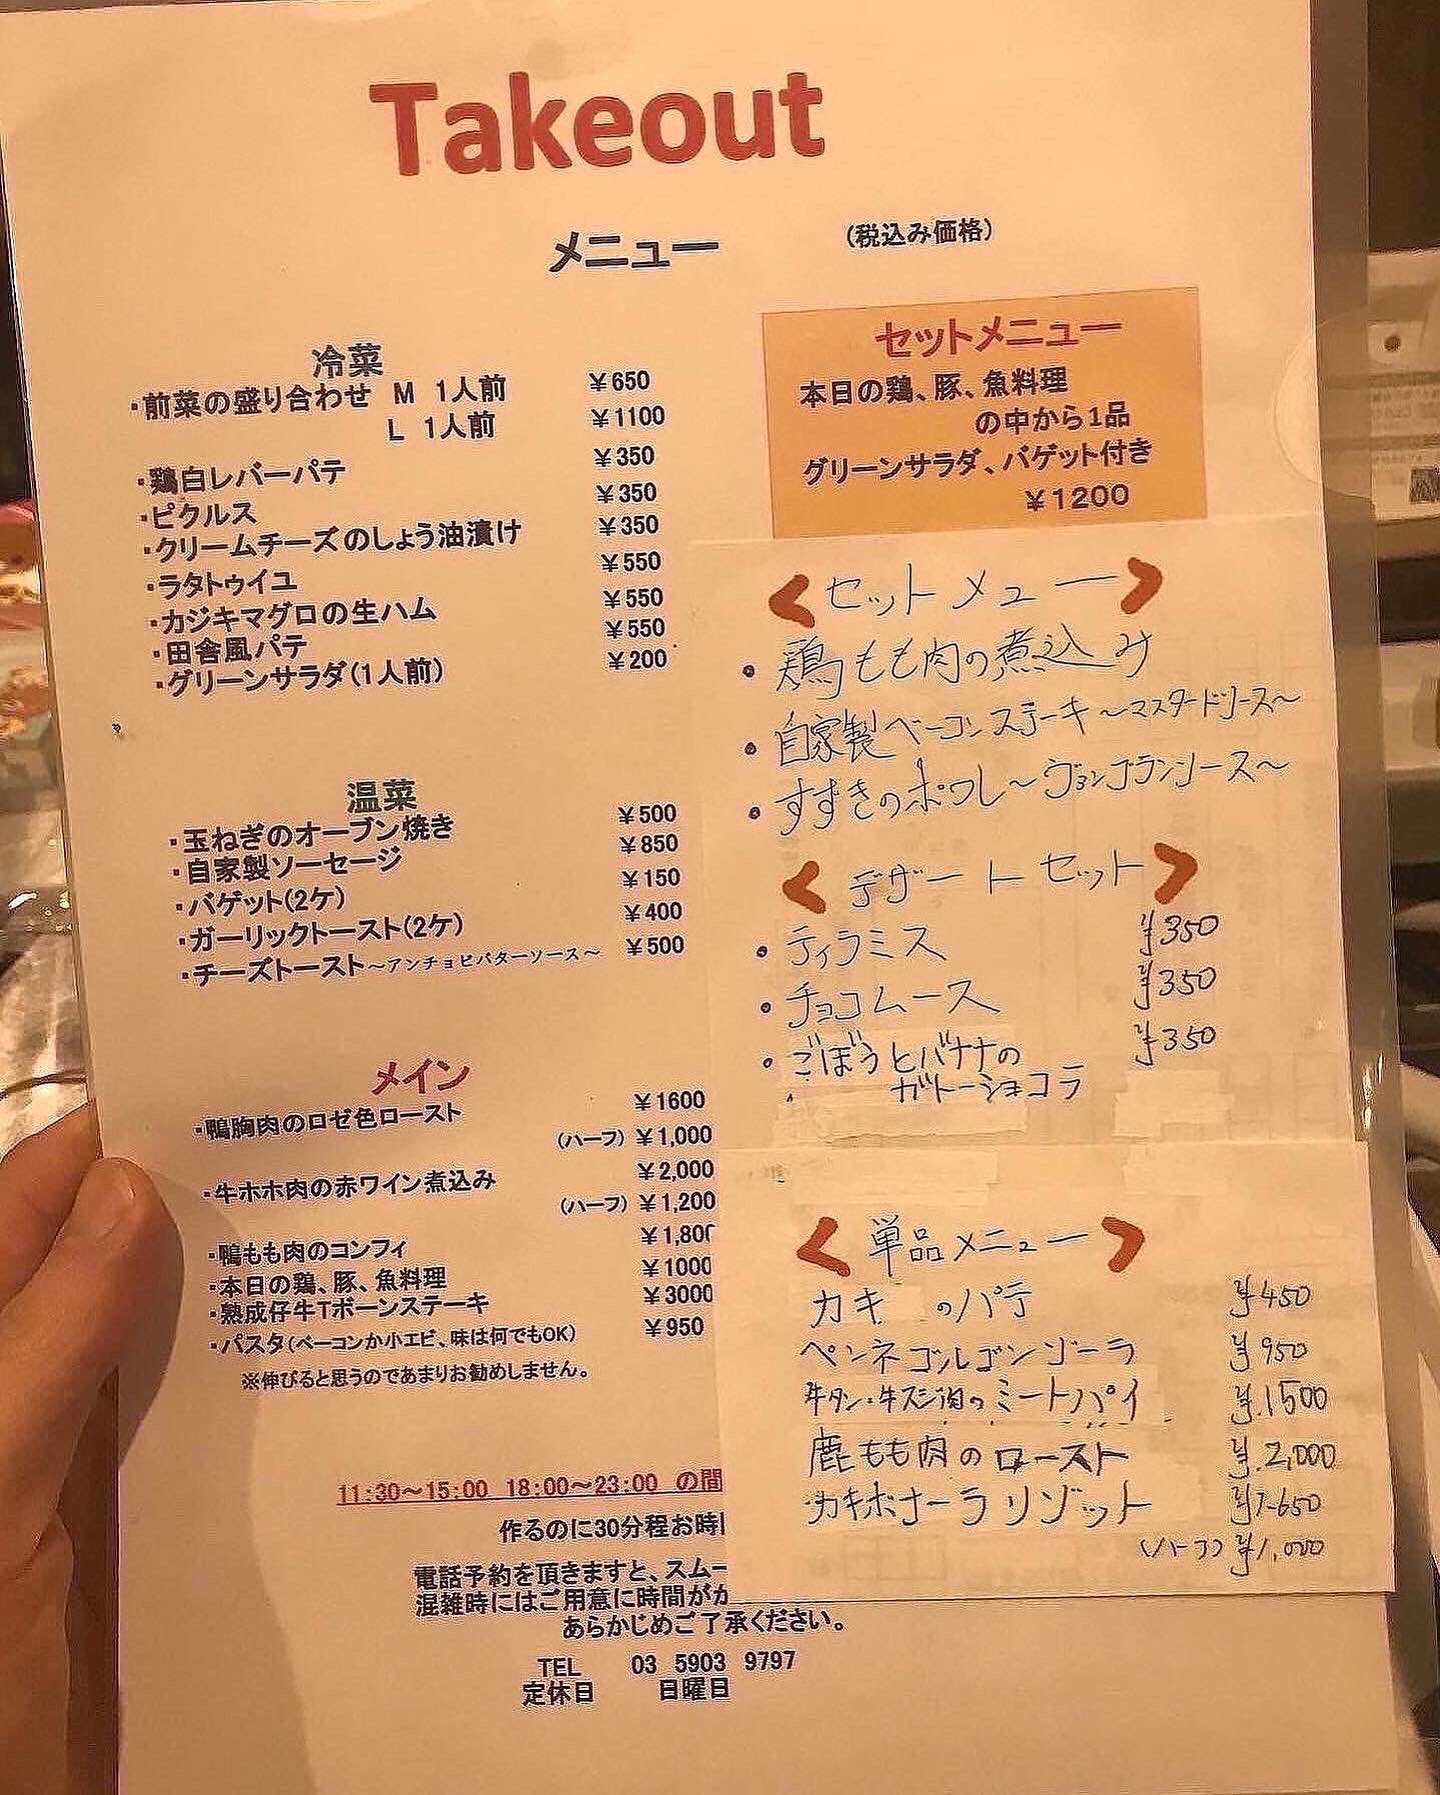 Takeout
メニュー (税込み価格)
冷菜
・前菜の盛り合わせ M 1人前 ¥650
L 1人前 ¥1100
・鶏白レバーパテ ¥350
・ピクルス ¥350
・クリームチーズのしょう油漬け ¥350
・ラタトゥイユ ¥550
・カジキマグロの生ハム ¥550
・田舎風パテ ¥550
・グリーンサラダ(1人前) ¥200
温菜
・玉ねぎのオーブン焼き ¥500
・自家製ソーセージ ¥850
・バゲット(2ケ) ¥150
・ガーリックトースト(2ケ) ¥400
・チーズトースト～アンチョビバターソース～ ¥500
メイン
・鴨胸肉のロゼ色ロースト ¥1600
(ハーフ) ¥1,000
・牛ホホ肉の赤ワイン煮込み ¥2,000
(ハーフ) ¥1,200
・鴨もも肉のコンフィ ¥1,800
・本日の鶏、豚、魚料理 ¥1000
・熟成仔牛Tボーンステーキ ¥3000
・パスタ(ベーコンか小エビ、味は何でもOK) ¥950
※伸びると思うのであまりお勧めしません。
セットメニュー
本日の鶏、豚、魚料理
の中から1品
グリーンサラダ、バゲット付き
¥1200
<セットメニュー>
・鶏もも肉の煮込み
・自家製ベーコンステーキ～マスタードソース～
・すずきのポワレ～ヴァンブランソース～
<デザートセット>
・ティラミス ¥350
・チョコムース ¥350
・ごぼうとバナナの ¥350
ガトーショコラ
<単品メニュー>
カキ のパテ ¥450
ペンネゴルゴンゾーラ ¥950
牛タン・牛スジ肉のミートパイ ¥1500
鹿もも肉のロースト ¥2,000
カキボナーラリゾット ¥1,650
(ハーフ) ¥1,000
11:30～15:00 18:00～23:00 の間
作るのに30分程お時
電話予約を頂きますと、スムー
混雑時にはご用意に時間がか
あらかじめご了承ください。
TEL 03 5903 9797
定休日 日曜日